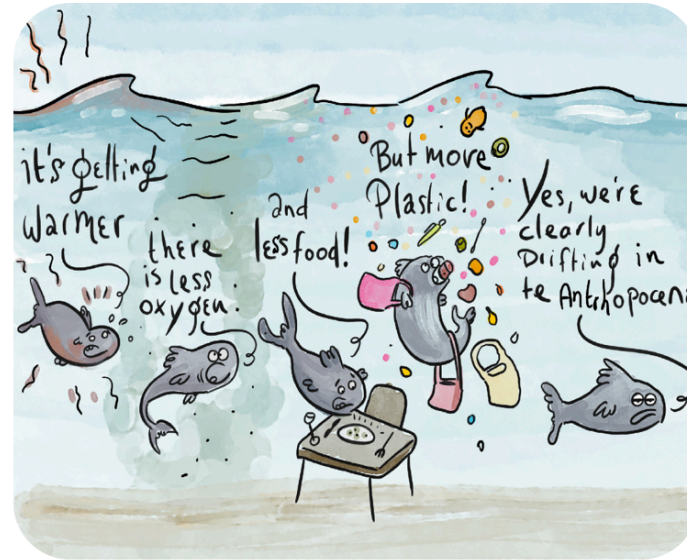 it's getting
warmer
there
is less
oxygen.
and
less food!
But more
Plastic!
Yes, we're
clearly
Drifting in
te Antrhopoceni